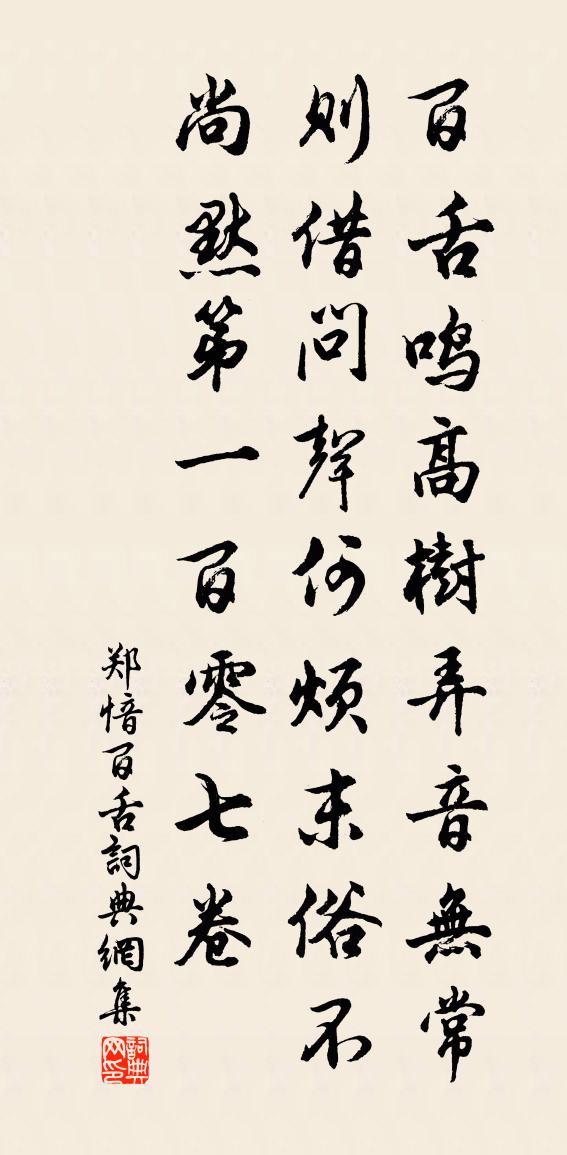 百舌鳴高樹弄音無常
則借問聲何煩末俗不
尚默第一百零七卷
郑愔百舌詞典網集
詞典网印